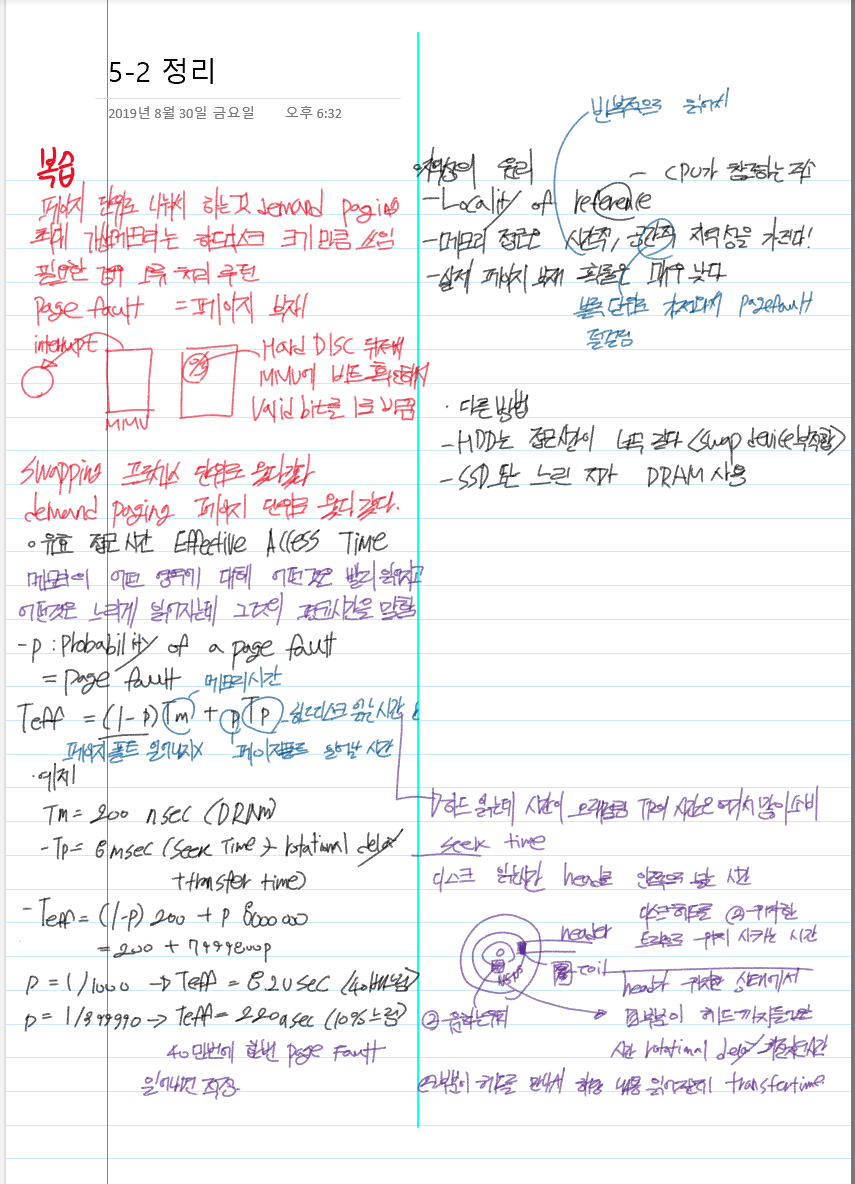 5-2 정리
2019년 8월 30일 금요일 오후 6:32
복습
페이지 단위로 나눠서 하는것 demand paging
최대 가상메모리는 하드디스크 크기만큼 쓰임
필요한 경우 오류 처리 루틴
Page fault = 페이지 부재
interrupt
MMU
Hard DISC 뒤져서
MMU에 비트 확인해서
Valid bit를 1로 바꿈
Swapping 프로세스 단위로 왔다갔다
demand paging 페이지 단위로 왔다 갔다.
유효 접근 시간 Effective Access Time
메모리의 어떤 영역에 대해 어떤것은 빨리 읽어지고
어떤것은 느리게 읽어지는데 그것의 평균시간을 말함
- p : Probability of a page fault
= Page fault
메모리시간
Teff = (1-p)Tm + pTp
하드디스크 읽는시간
페이지폴트 일어나지X
페이지폴트 일어날 시간
· 예제
Tm = 200 nsec (DRAM)
- Tp = 8msec (seek time + rotational delay
+ transfer time)
- Teff = (1-p) 200 + p 8000000
= 200 + 7999800p
p = 1/1000 → Teff = 8.2usec (40배느림)
p = 1/399990 → Teff = 220nsec (10%느림)
40만번에 한번 page fault
반복적으로 읽어지
지역성의 원리
- CPU가 참조하는 주소
- Locality of reference
- 메모리 접근은 시간적, 공간적 지역성을 가진다!
- 실제 페이지 부재 확률은 매우 낮다
블록 단위로
page fault
· 다른 방법
- HDD는 접근시간이 너무 길다 <swap device 부적합>
- SSD 또는 느린 저가 DRAM 사용
하드 읽는데 시간이 오래걸림 Tp의 시간은 여기서 많이 소비
seek time
디스크 읽는시간 header
안쪽으로
시간
디스크헤드를
위치한
트랙으로 위치 시키는 시간
header
coil
head가 위치한 상태에서
부분이 헤드까지
시간 rotational delay
부분이 헤드를 만나서 해당 내용 읽어질때 transfer time